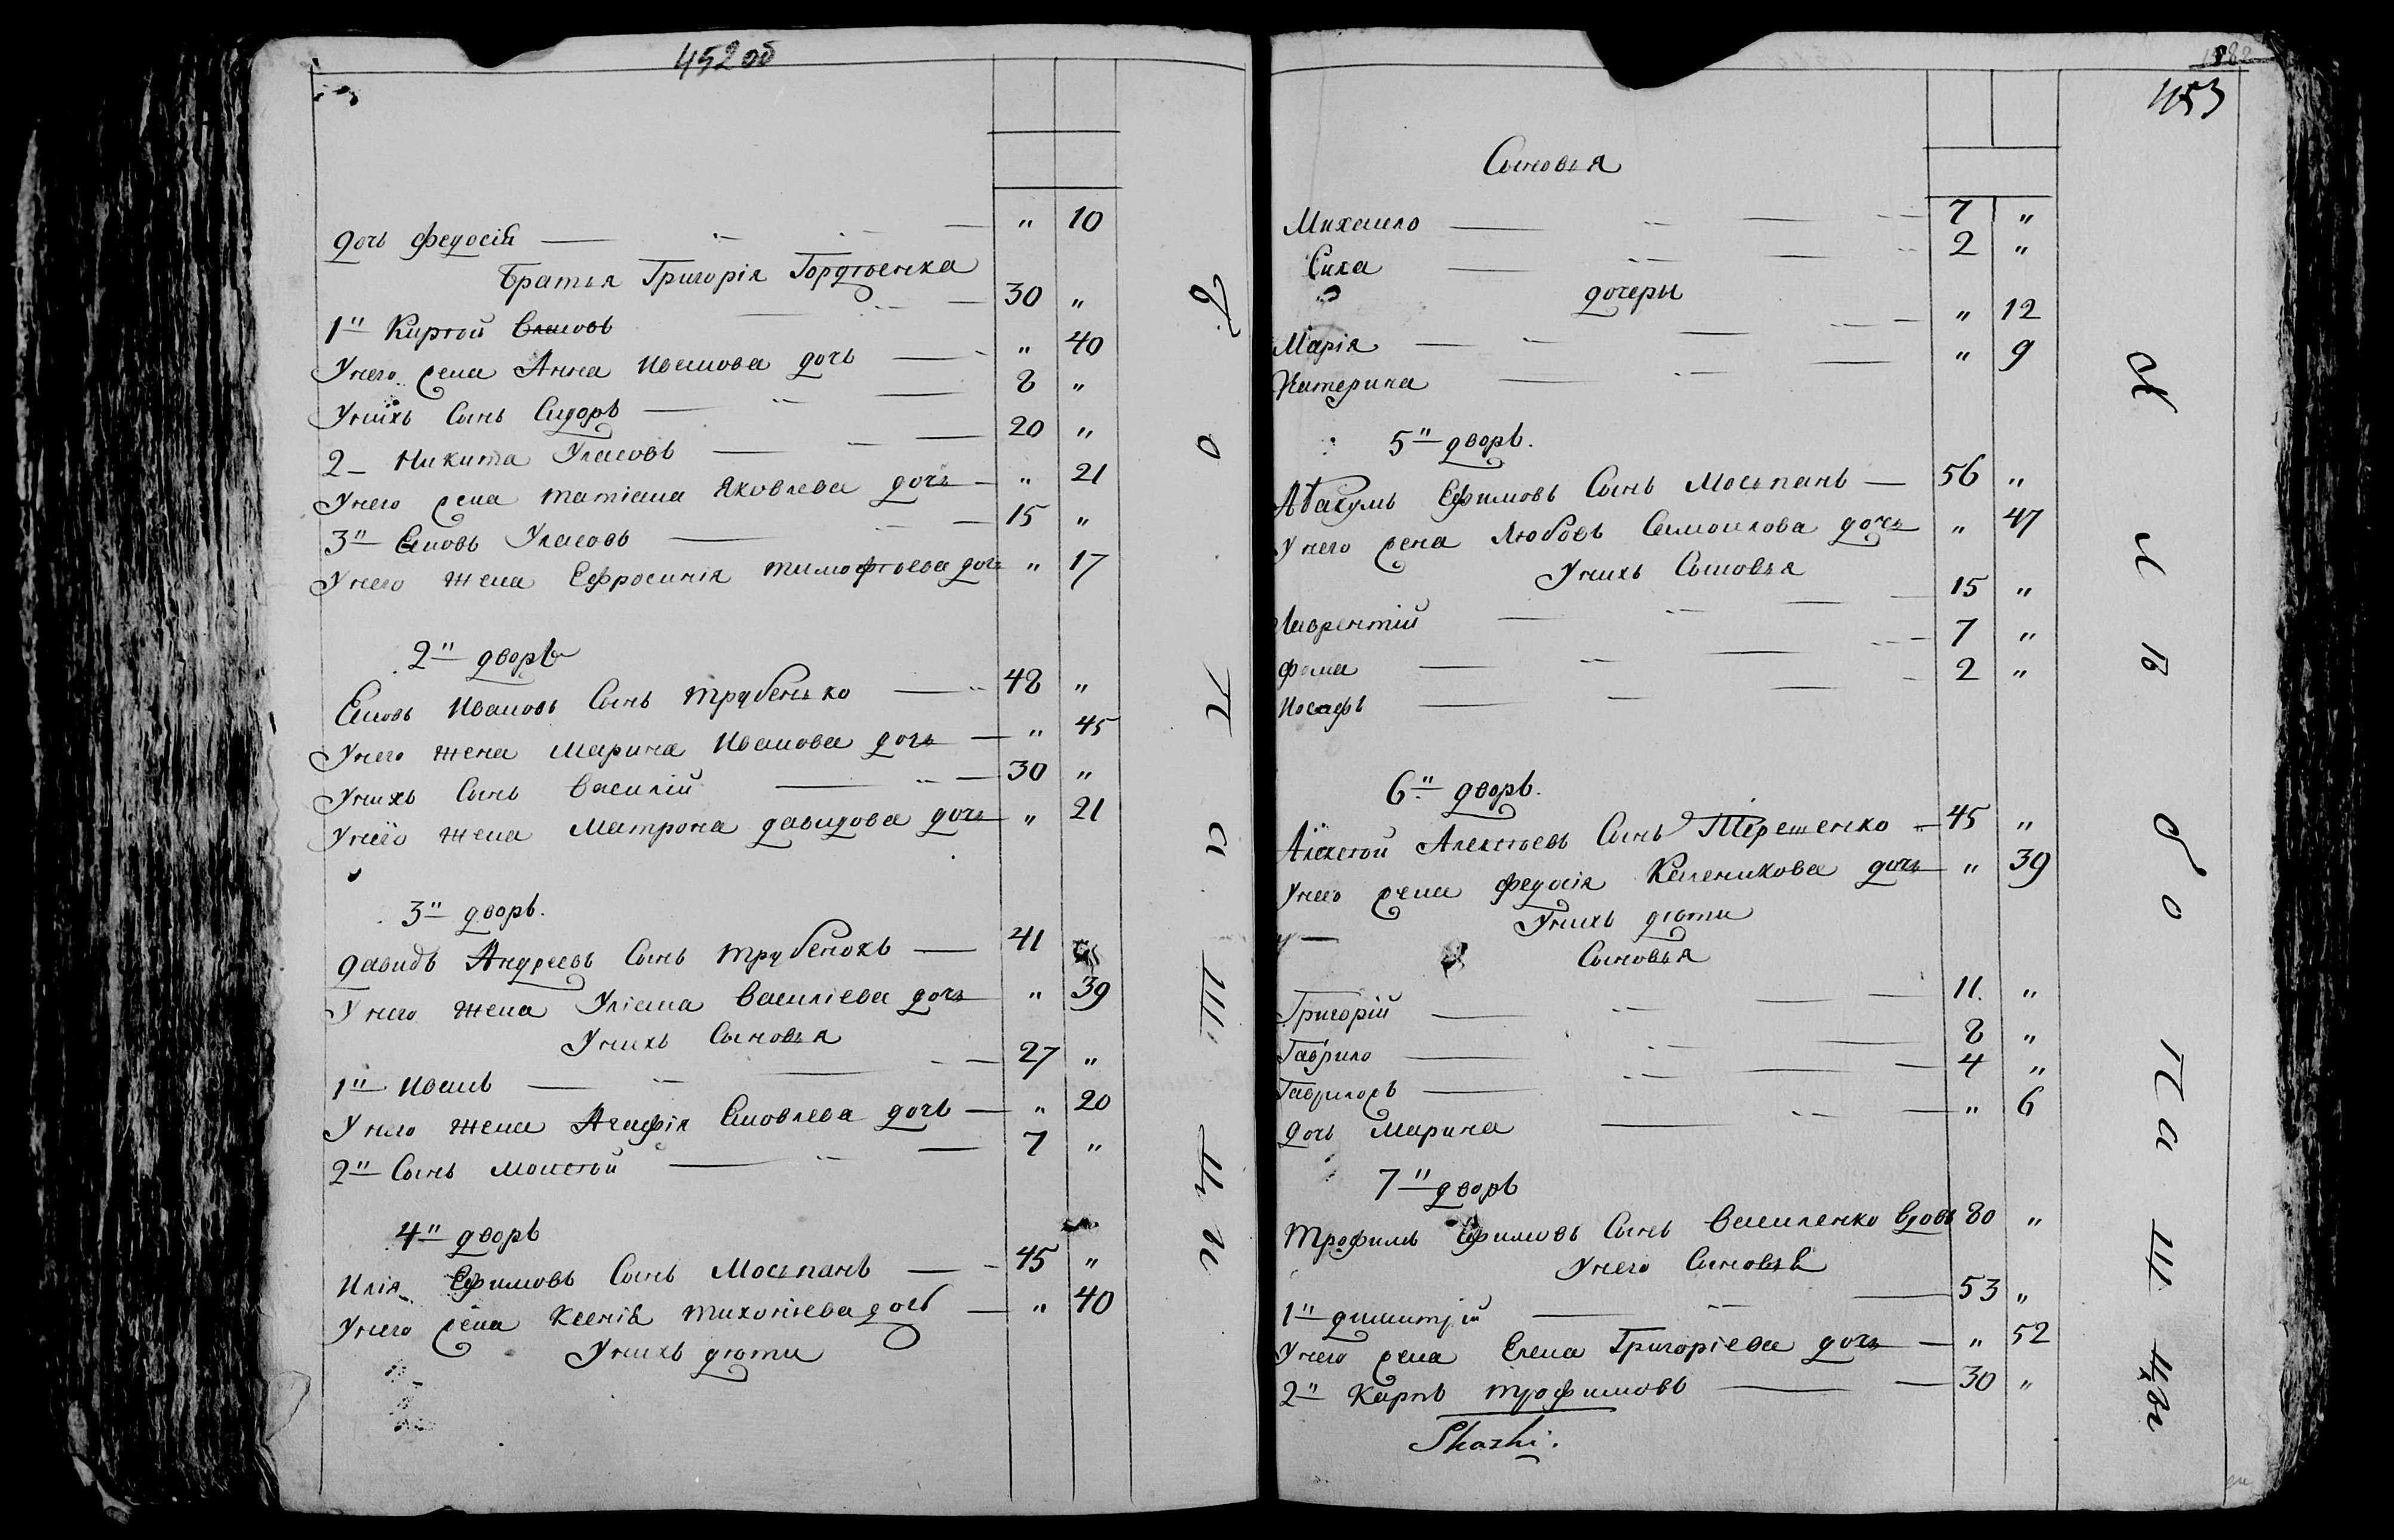 452 об
дочь Федосія — " 10
Братья Григорія Гордѣенка
1" Кирѣй Власовъ — 30 "
У него жена Анна Иванова дочь — " 40
У нихъ сынъ Сидоръ — 8 "
2 – Никита Уласовъ — 20 "
У него жена Татіана Яковлева дочь — " 21
3" Яковъ Уласовъ — 15 "
У него жена Ефросинія Тимофѣева дочь " 17
2" дворъ
Яковъ Ивановъ сынъ Трубенько — 48 "
У него жена Марина Иванова дочь — " 45
У нихъ сынъ Василій — 30 "
У него жена Матрона Давидова дочь " 21
3" дворъ.
Давидъ Андреевъ сынъ Трубенокъ — 41
У него жена Уліана Василіева дочь " 39
У нихъ сыновья
1" Иванъ — 27 "
У него жена Агафія Яковлева дочь — " 20
2" сынъ Моисѣй — 7 "
4" дворъ
Илія Ефимовъ сынъ Мосьпанъ — 45 "
У него жена Ксенія Тихоніева дочь — " 40
У нихъ дѣти
453
Сыновья
Михаило — 7 "
Сила — 2 "
дочеры
Марія — " 12
Катерина — " 9
5" дворъ.
Абакумъ Ефимовъ сынъ Мосьпанъ — 56 "
У него жена Любовь Самоилова дочь " 47
У нихъ сыновья
Лаврентій — 15 "
Фома — 7 "
Иосафъ — 2 "
6" дворъ.
Алексѣй Алексѣевъ сынъ Терещенко — 45 "
У него жена Федосія Каленикова дочь " 39
У нихъ дѣти
Сыновья
Григорій — 11. "
Гаврило — 8 "
Гаврилоръ — 4 "
дочь Марина — " 6
7" дворъ
Трофимъ Ефимовъ сынъ Василенко вдовъ 80 "
У него сыновья
1" Димитрій — 53 "
У него жена Елена Григоріева дочь — " 52
2" Карпъ Трофимовъ — 30 "